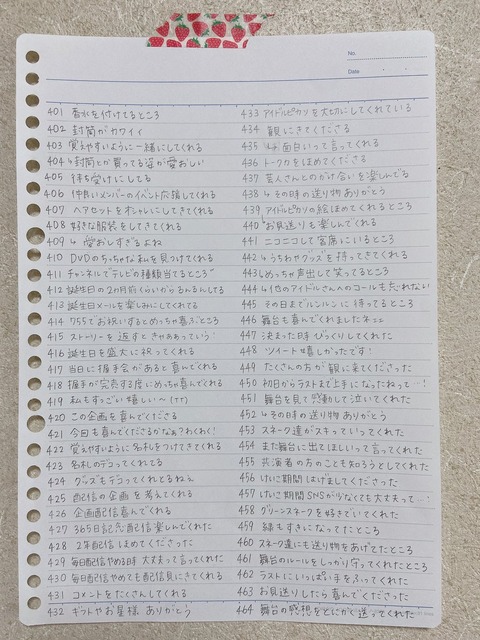 No.
Date
401 香水を付けてるところ
402 封筒がカワイイ
403 覚えやすいように一緒にしてくれる
404 ↳封筒とか買ってる姿が愛おしい
405 待ち受けにしてる
406 仲良いメンバーのイベント応援してくれる
407 ヘアセットをオシャレにしてきてくれる
408 好きな服装をしてきてくれる
409 ↳ 愛おしすぎるよね
410 DVDのちっちゃな私を見つけてくれる
411 チャンネルでテレビの種類当てるところ
412 誕生日の2カ月前くらいからるんるんしてる
413 誕生日メールを楽しみにしてくれてる
414 755でお祝いするとめっちゃ喜ぶところ
415 ストーリーを返すときゃああっていう
416 誕生日を盛大に祝ってくれる
417 当日に握手会があると喜んでくれる
418 握手が完売する度にめっちゃ喜んでくれる
419 私もすっごい嬉しい〜(TT)
420 この企画を喜んでくださる
421 今日も喜んでくださるかなぁ?わくわく!
422 覚えやすいように名札をつけてきてくれる
423 名札のデコってくれてる
424 グッズもデコってくれとるねぇ
425 配信の企画を考えてくれる
426 企画配信喜んでくれる
427 365日記念配信楽しんでくれた
428 2年配信ほめてくださった
429 毎日配信やめる時 大丈夫って言ってくれた
430 毎日配信やめても配信見にきてくれる
431 コメントをたくさんしてくれる
432 ギフトやお星様 ありがとう
433 アイドルピカリを大切にしてくれている
434 観にきてくださる
435 ↳面白いって言ってくれる
436 トーク力をほめてくださる
437 芸人さんとのかけ合いを楽しんでる
438 ↳その時の送り物ありがとう
439 アイドルピカリの絵ほめてくれるところ
440 お見送りも楽しんでくれる
441 ニコニコして客席にいるところ
442 ↳うちわやグッズを持ってきてくれる
443 めっちゃ声出して笑ってるところ
444 ↳他のアイドルさんへのコールも忘れない
445 その日までルンルンに待ってるところ
446 舞台も喜んでくれました
447 決まった時びっくりしてくれた
448 ツイート嬉しかったです!
449 たくさんの方が観に来てくださった
450 初日からラストまで上手になったねって…!
451 舞台を見て感動して泣いてくれた
452 ↳その時の送り物ありがとう
453 スネーク達がスキっていってくれた
454 また舞台に出てほしいって言ってくれた
455 共演者の方のことも知ろうとしてくれた
456 けいこ期間 はげましてくださった
457 けいこ期間SNSが少なくても大丈夫って…!
458 グリーンスネークを好きでいてくれた
459 緑もすきになってたところ
460 スネーク達にも送り物をあげてたところ
461 舞台のルールをしっかり守ってくれたところ
462 ラストにいっぱい手をふってくれた
463 お見送りしたら喜んでくださった
464 舞台の感想をとにかく送ってくれた